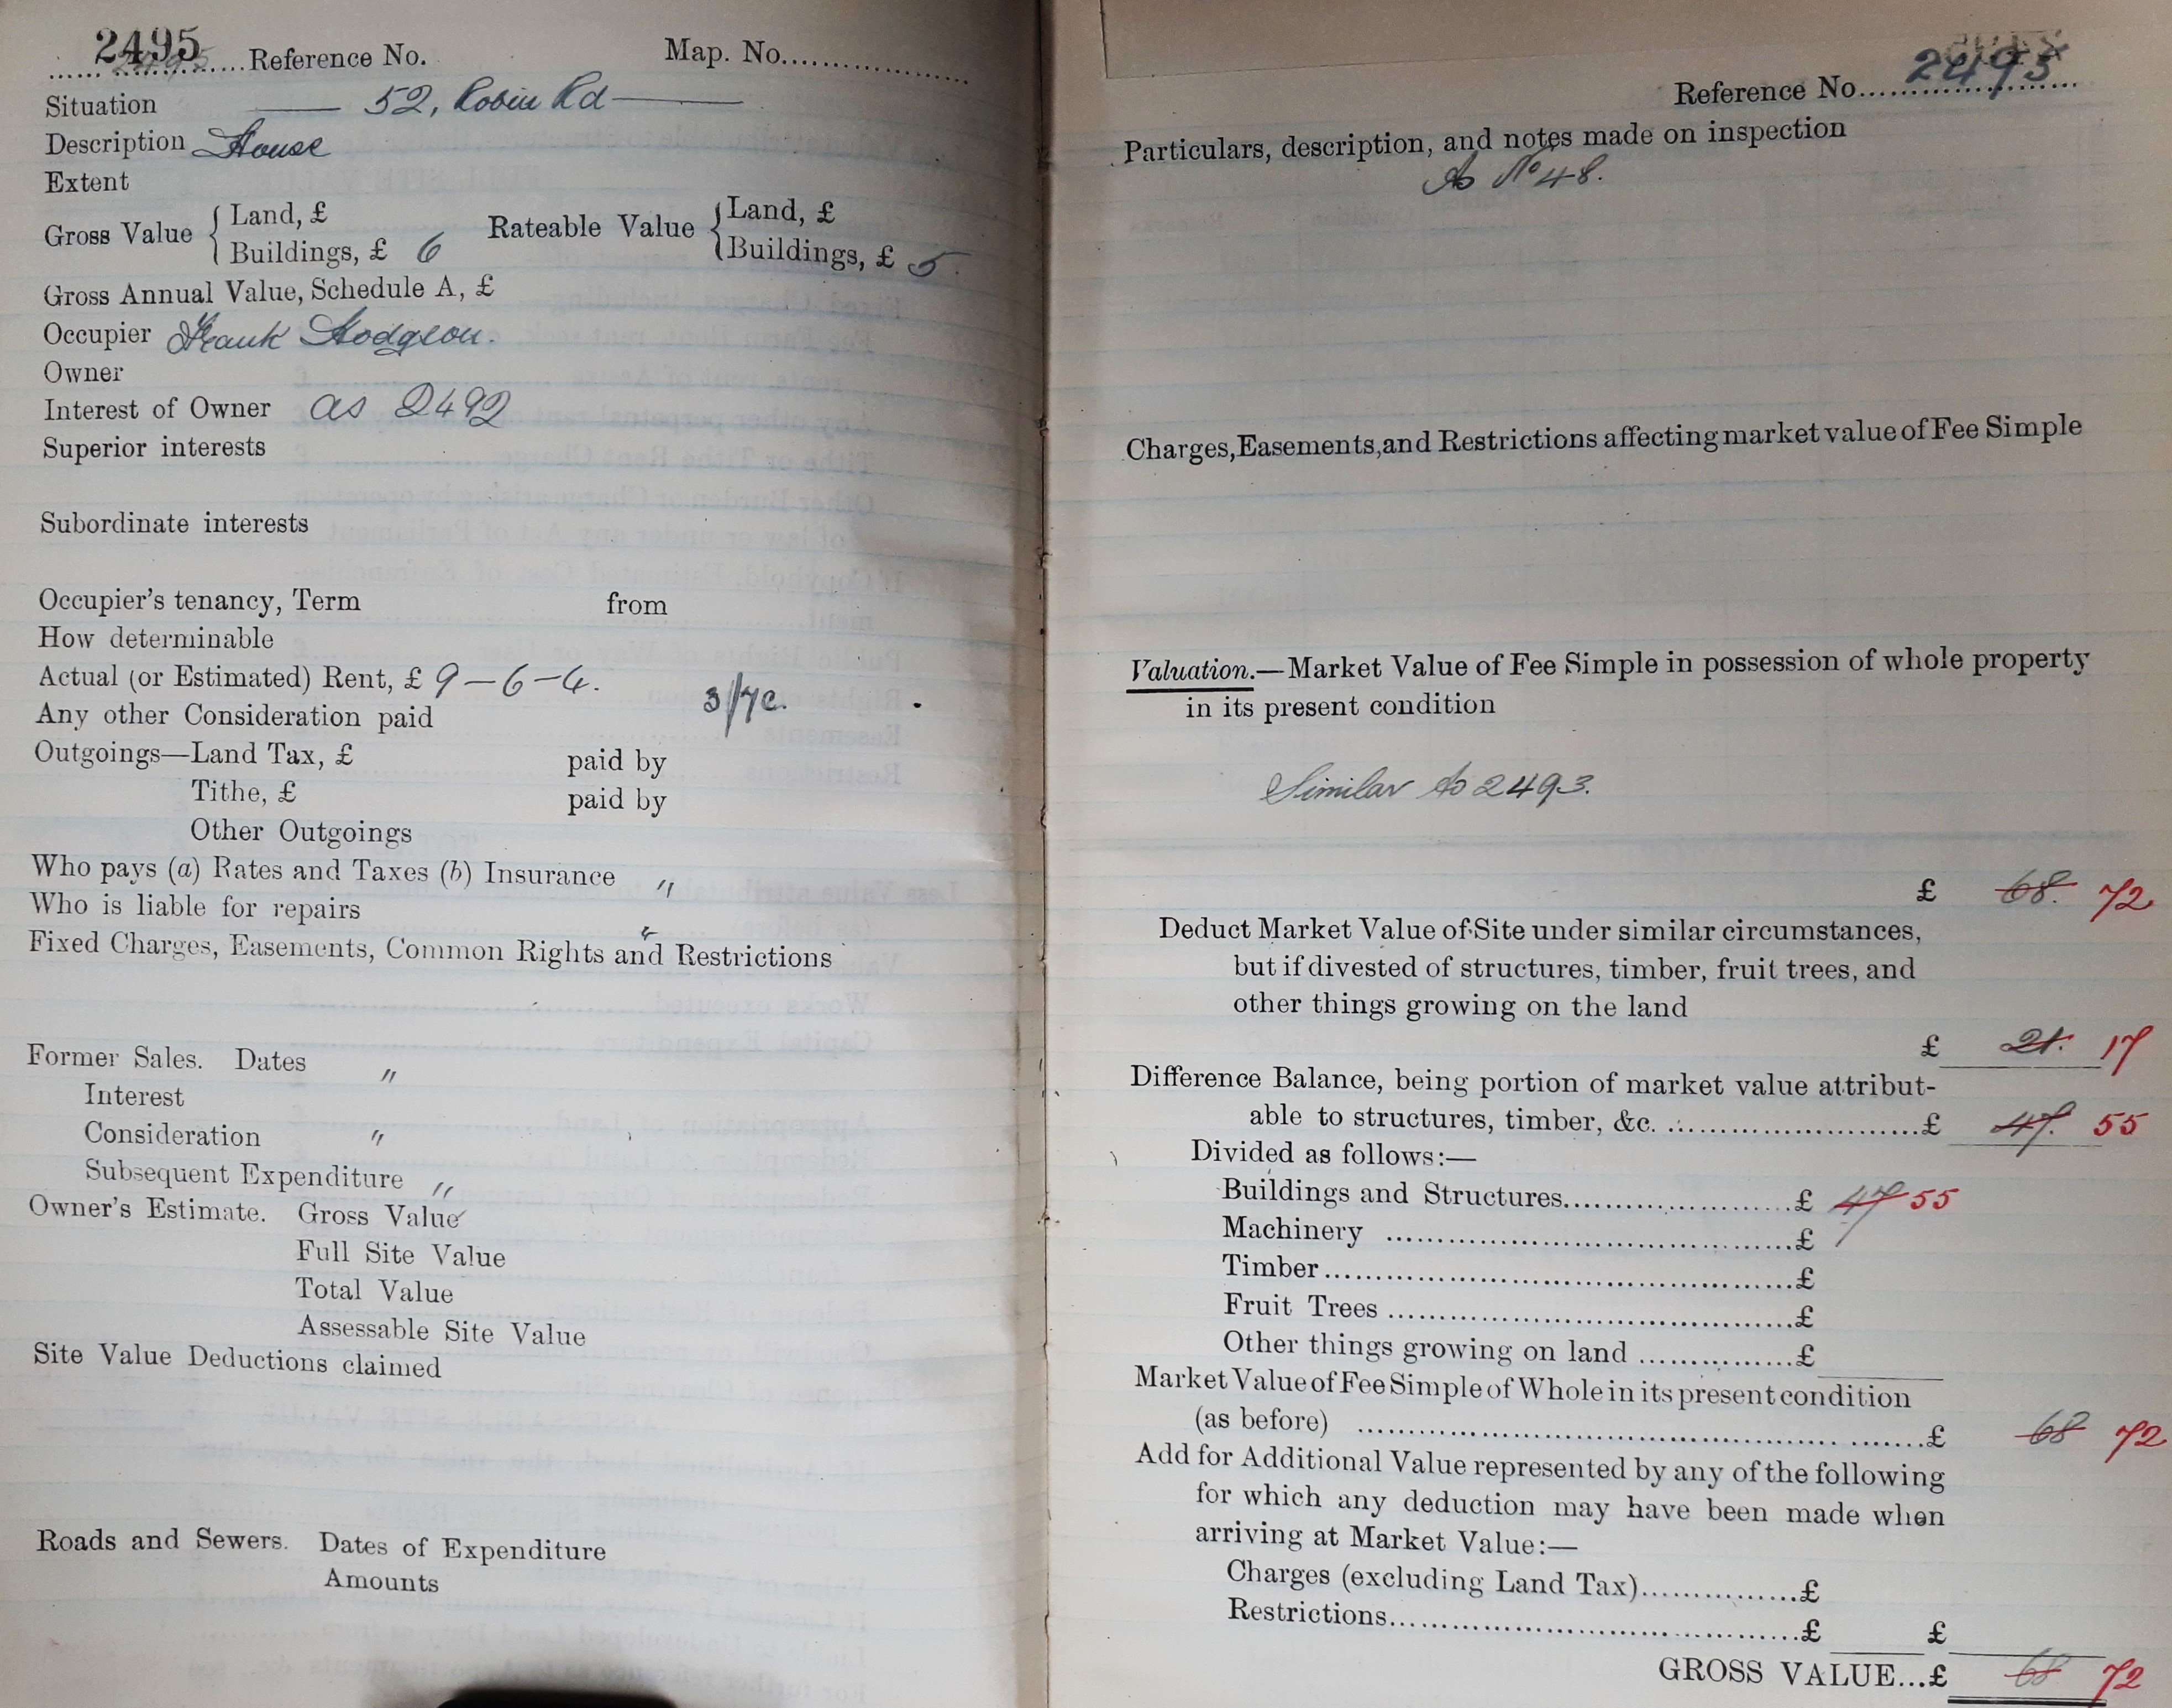 2495 Reference No. Map. No.
Situation — 52, Robin Rd —
Description House
Extent
Gross Value { Land, £ Rateable Value { Land, £
Buildings, £ 6 Buildings, £ 5.
Gross Annual Value, Schedule A, £
Occupier Frank Hodgson.
Owner
Interest of Owner as 2492
Superior interests
Subordinate interests
Occupier's tenancy, Term from
How determinable
Actual (or Estimated) Rent, £ 9-6-4. 3/7c.
Any other Consideration paid
Outgoings—Land Tax, £ paid by
Tithe, £ paid by
Other Outgoings
Who pays (a) Rates and Taxes (b) Insurance "
Who is liable for repairs "
Fixed Charges, Easements, Common Rights and Restrictions
Former Sales. Dates "
Interest
Consideration "
Subsequent Expenditure "
Owner's Estimate. Gross Value
Full Site Value
Total Value
Assessable Site Value
Site Value Deductions claimed
Roads and Sewers. Dates of Expenditure
Amounts
Reference No. 2495
Particulars, description, and notes made on inspection
As No 48.
Charges, Easements, and Restrictions affecting market value of Fee Simple
Valuation.—Market Value of Fee Simple in possession of whole property
in its present condition
Similar to 2493.
£ 68. 72
Deduct Market Value of Site under similar circumstances,
but if divested of structures, timber, fruit trees, and
other things growing on the land
£ 21. 17
Difference Balance, being portion of market value attribut-
able to structures, timber, &c. £ 47. 55
Divided as follows:—
Buildings and Structures £ 47 55
Machinery £
Timber £
Fruit Trees £
Other things growing on land £
Market Value of Fee Simple of Whole in its present condition
(as before) £ 68 72
Add for Additional Value represented by any of the following
for which any deduction may have been made when
arriving at Market Value:—
Charges (excluding Land Tax) £
Restrictions £ £
GROSS VALUE...£ 68 72